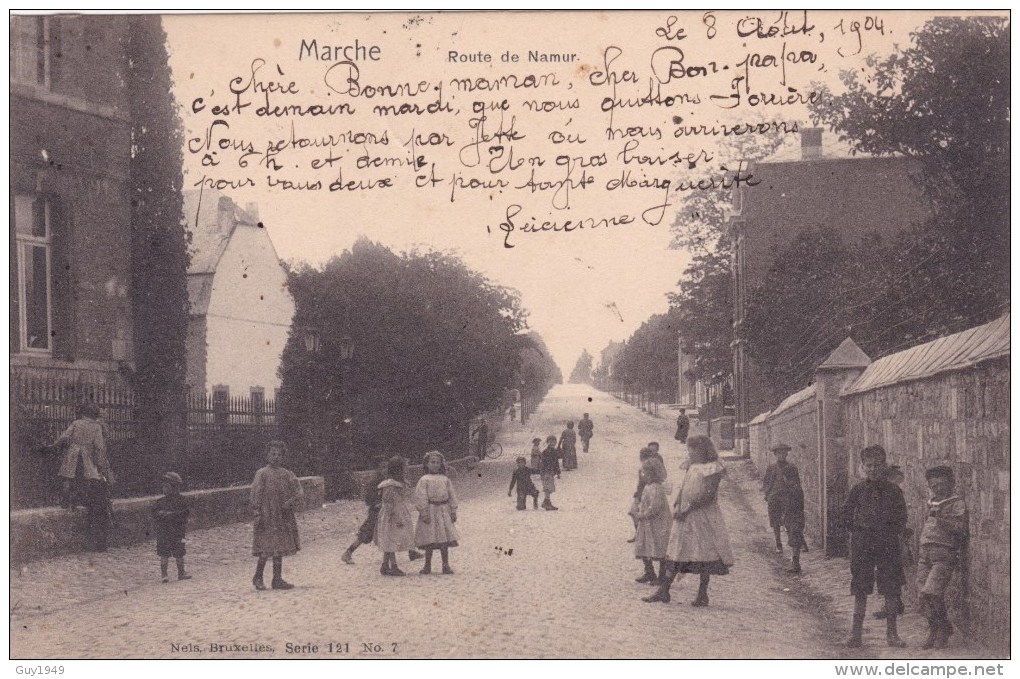 Le 8 Août, 1904.
Marche
Route de Namur.
Chère Bonne-maman, cher Bon-papa,
c'est demain mardi, que nous quittons Forrières
Nous retournons par Jette où nous arriverons
à 6 h. et demie. Un gros baiser
pour vous deux et pour tante Marguerite
Lucienne
Nels, Bruxelles, Serie 121 No. 7
Guy1949
www.delcampe.net